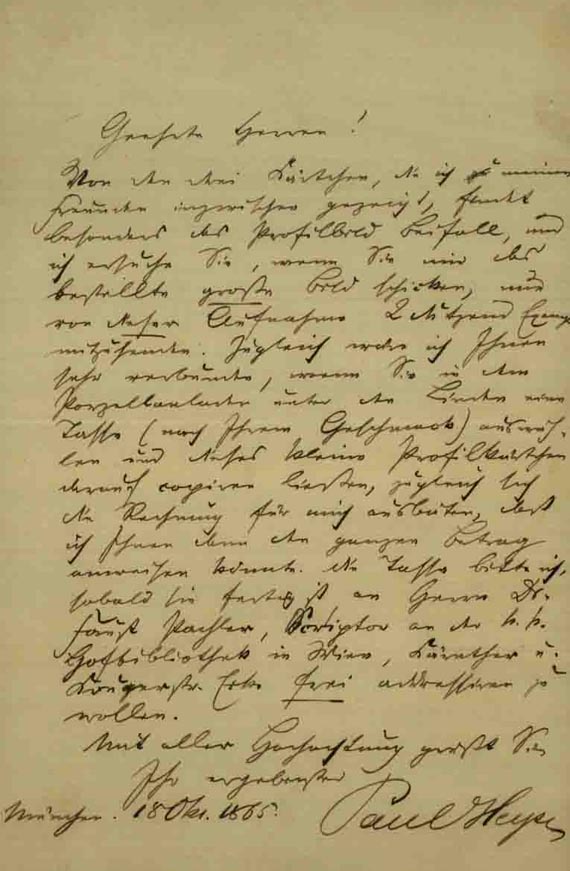 Geehrte Herren!
Von den drei Kärtchen, die ich meinen
Freunden inzwischen gezeigt, findet
besonders das Profilbild Beifall, und
ich ersuche Sie, wenn Sie mir das
bestellte große Bild schicken, nur
von dieser Aufnahme 2 Dutzend Exempl
mitzusenden. Zugleich wäre ich Ihnen
sehr verbunden, wenn Sie in dem
Porzellanladen unter den Linden eine
Tasse (nach Ihrem Geschmack) auswäh-
len und dieses kleine Profilkärtchen
darauf copiren ließen, zugleich sich
die Rechnung für mich ausbäten, daß
ich Ihnen dann den ganzen Betrag
anweisen könnte. Die Tasse bitte ich,
sobald sie fertig ist an Herrn Dr.
Faust Pachler, Scriptor an der k. k.
Hofbibliothek in Wien, Kärnther u.
Krugerstr. Ecke frei addressiren zu
wollen.
Mit aller Hochachtung grüßt Sie
Ihr ergebenster
München. 18 Okt. 1865. Paul Heyse